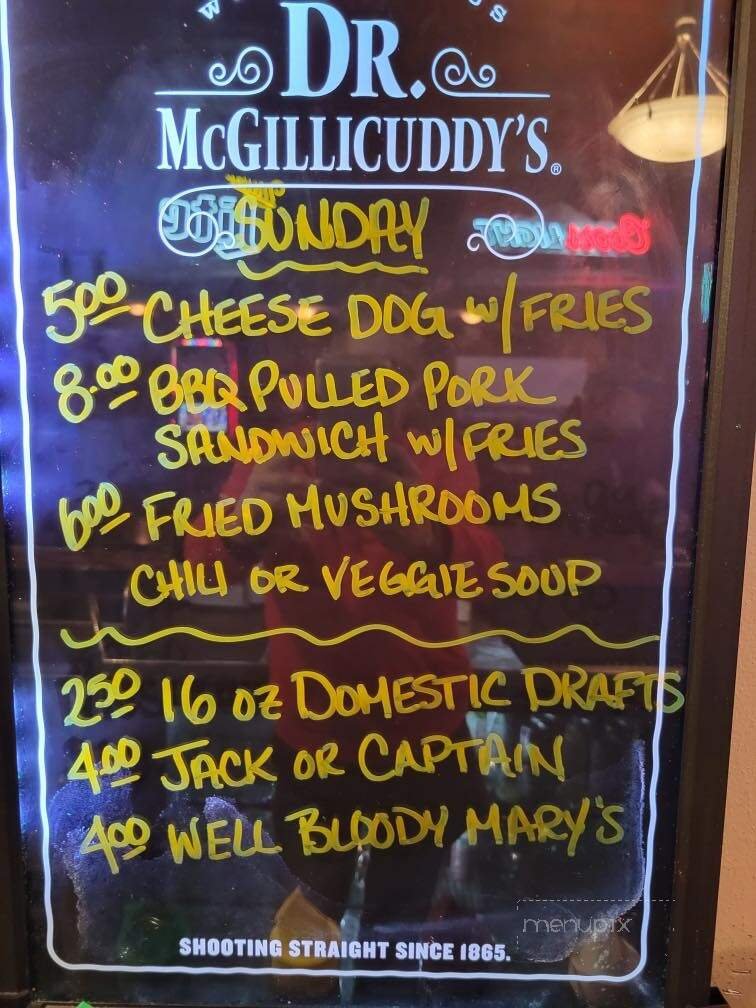 DR.
McGILLICUDDY'S®
SUNDAY
5.00 CHEESE DOG w/ FRIES
8.00 BBQ PULLED PORK
SANDWICH w/ FRIES
6.00 FRIED MUSHROOMS
CHILI OR VEGGIE SOUP
2.50 16 oz DOMESTIC DRAFTS
4.00 JACK OR CAPTAIN
4.00 WELL BLOODY MARY'S
menupix
SHOOTING STRAIGHT SINCE 1865.